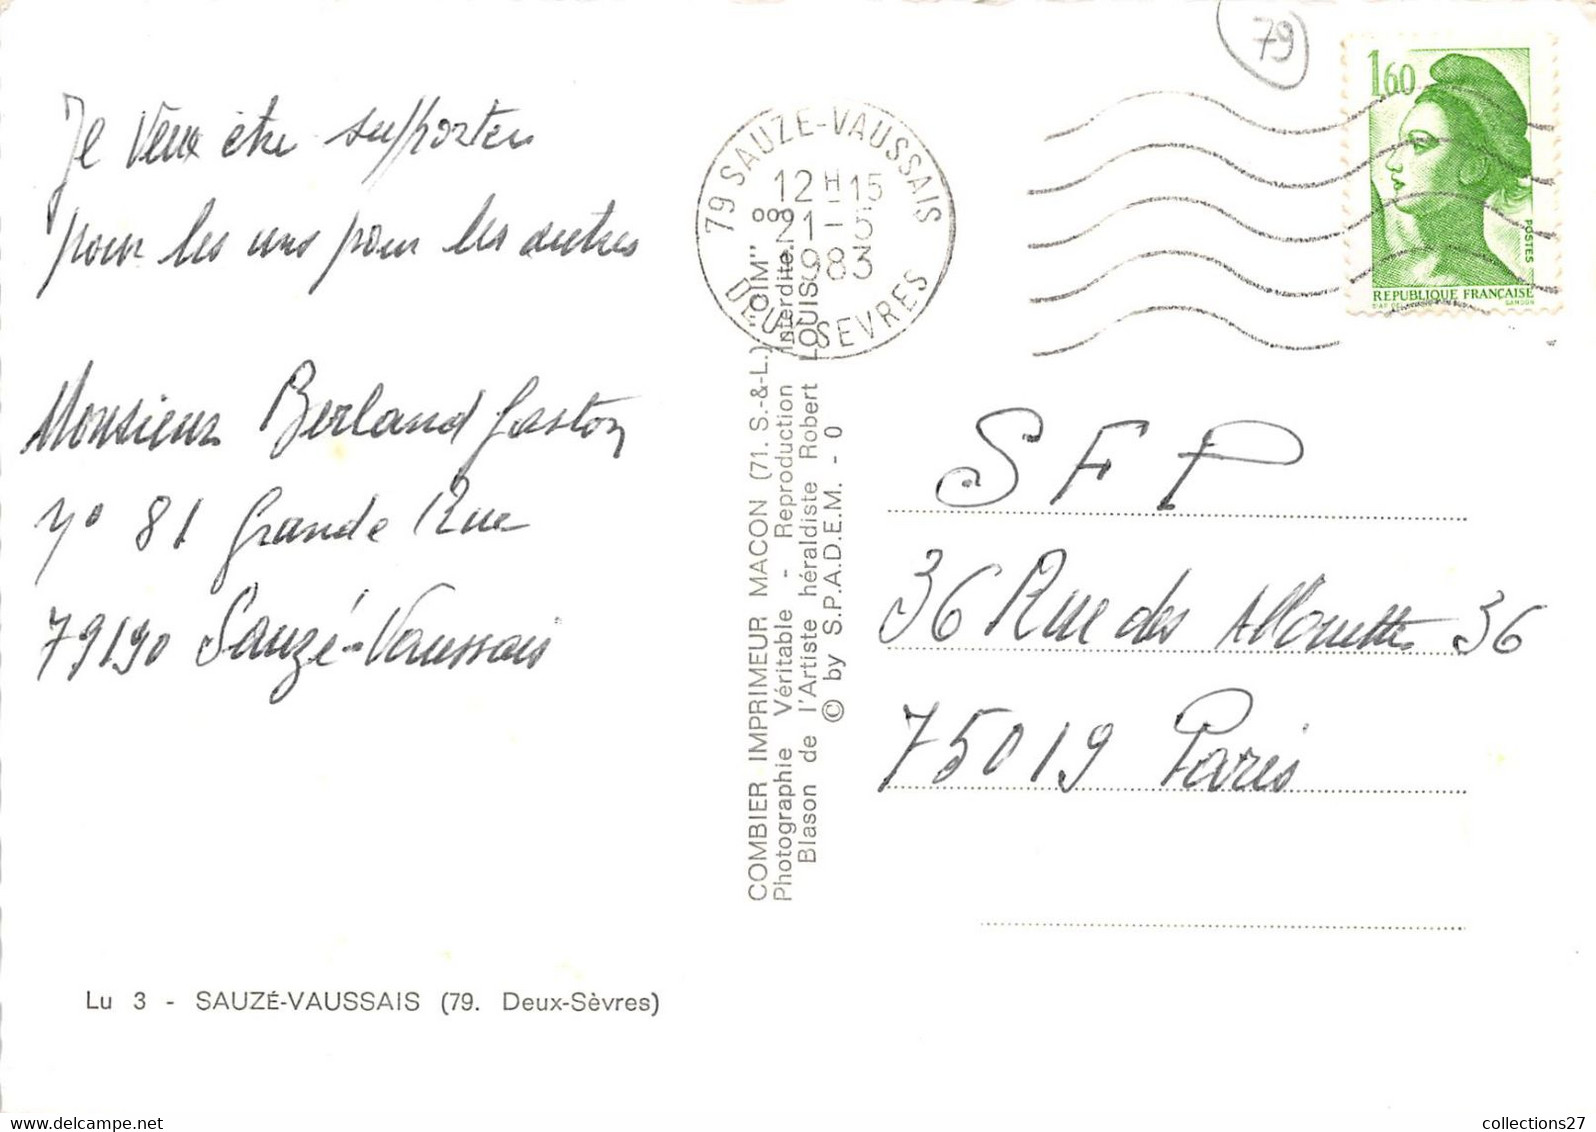 79
Je Veux être supporter
pour les uns pour les autres
Monsieur Berland Gaston
N° 81 Grande Rue
79190 Sauzé-Vaussais
Lu 3 - SAUZÉ-VAUSSAIS (79. Deux-Sèvres)
COMBIER IMPRIMEUR MACON (71. S.-&-L.) "CIM"
Photographie Véritable - Reproduction Interdite.
Blason de l'Artiste héraldiste Robert LOUIS
© by S.P.A.D.E.M. - 0
79 SAUZE-VAUSSAIS
12 H 15
21 - 5
1983
DEUX SEVRES
1,60
POSTES
REPUBLIQUE FRANÇAISE
GANDON
S F P
36 Rue des Allouettes 36
75019 Paris
collections27